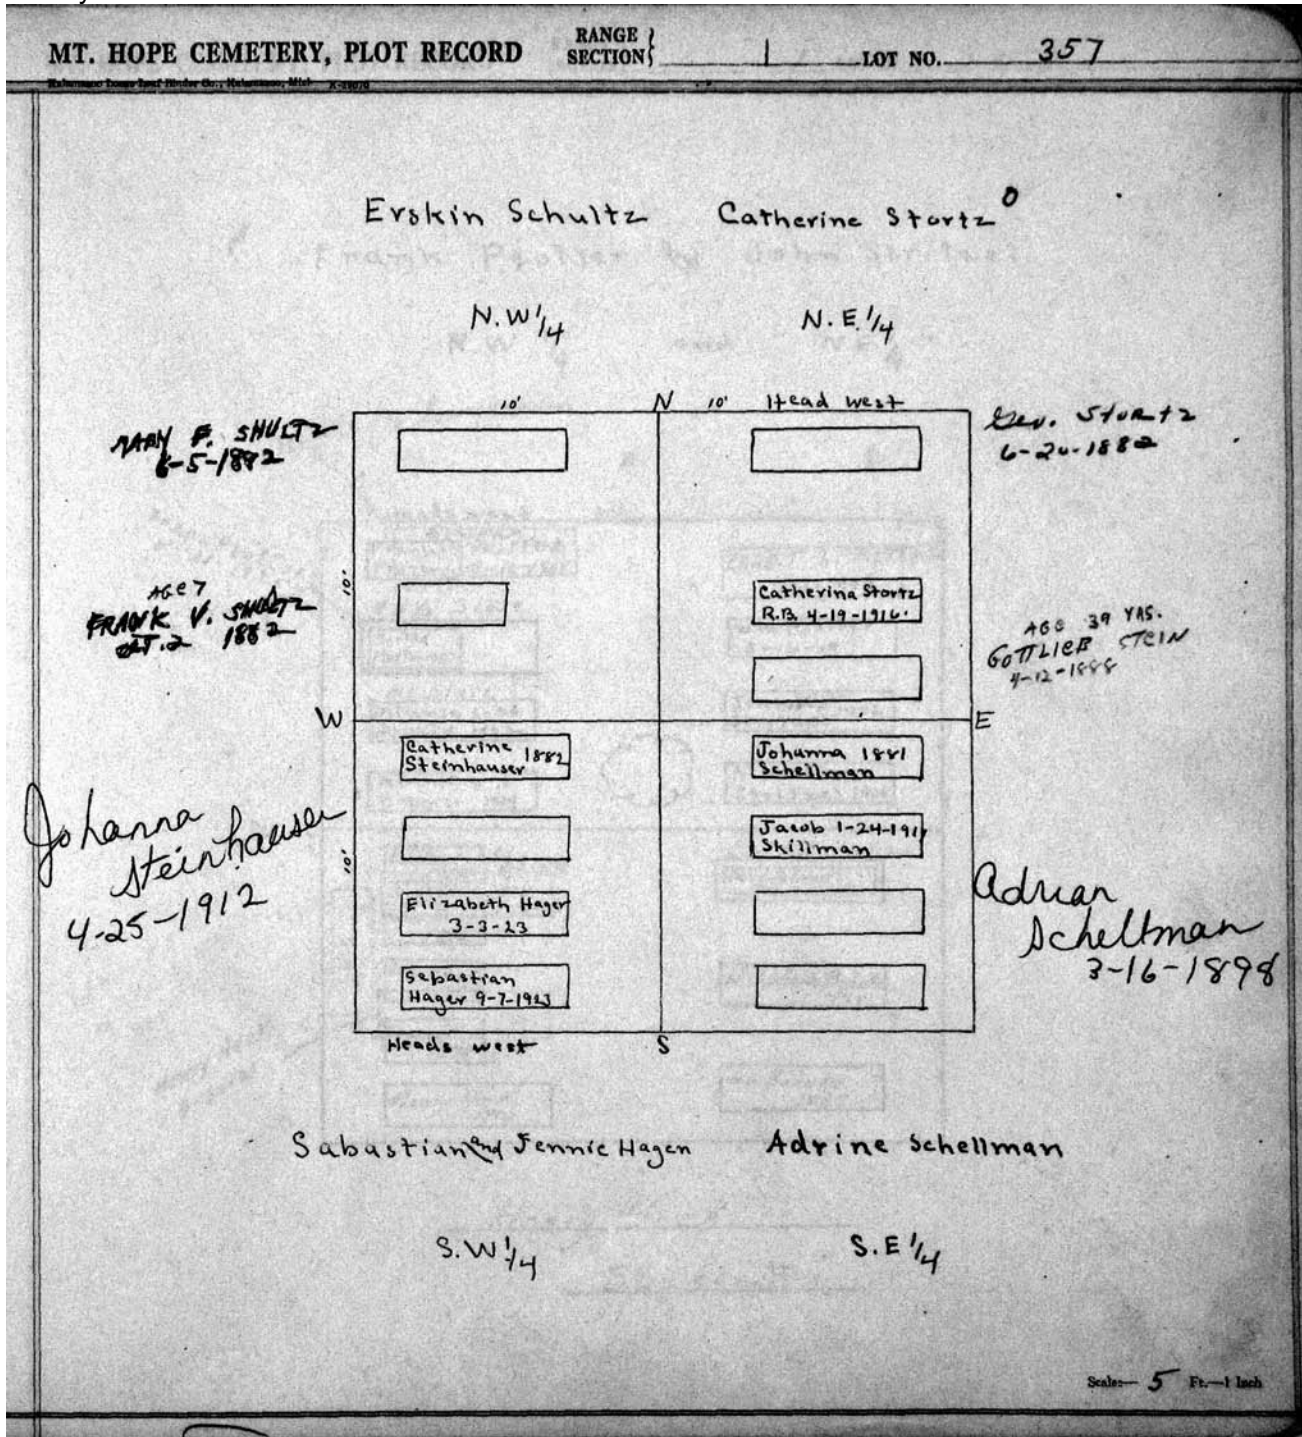 MT. HOPE CEMETERY, PLOT RECORD
RANGE
SECTION
1
LOT NO. 357
Erskin Schultz
Catherine Stortz
N.W 1/4
N.E. 1/4
10' N 10' Head west
MARY F. SHULTZ
6-5-1882
Geo. Stortz
6-20-1882
10'
AGE 7
FRANK V. SHULTZ
OCT. 2 1882
Catherina Stortz
R.B. 4-19-1916
AGE 39 YRS.
GOTTLIEB STEIN
4-12-1888
W
E
Catherine 1882
Steinhauser
Johanna 1881
Schellman
Johanna
Steinhauser
4-25-1912
10'
Jacob 1-24-1911
Skillman
Elizabeth Hager
3-3-23
Adrian
Schellman
3-16-1898
Sebastian
Hager 9-7-1923
Heads west
S
Sabastian and Jennie Hagen
Adrine Schellman
S.W 1/4
S.E 1/4
Scale:— 5 Ft.—1 Inch